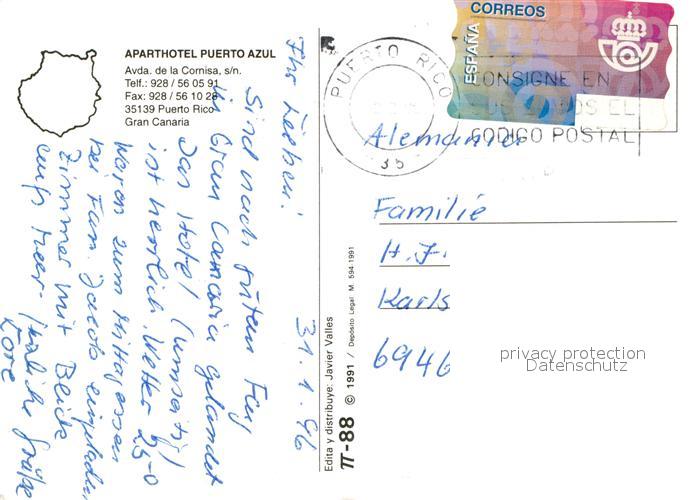 APARTHOTEL PUERTO AZUL
Avda. de la Cornisa, s/n.
Telf.: 928 / 56 05 91
Fax: 928 / 56 10 28
35139 Puerto Rico
Gran Canaria
31. 1. 96
Ihr Lieben!
Sind nach gutem Flug
in Gran Canaria gelandet
Das Hotel
ist herrlich. Wetter 25-0
Waren zum Mittagessen
bei Fam. Jacob eingeladen
Zimmer mit Blick
aufs Meer - Grüße
Edita y distribuye: Javier Valles
π-88 © 1991 / Depósito Legal M. 594-1991
CORREOS
ESPAÑA
PUERTO RICO
35
CONSIGNE EN
SUS ENVIOS EL
CODIGO POSTAL
Alemania
Familie
H. J.
Karls
6946
privacy protection
Datenschutz